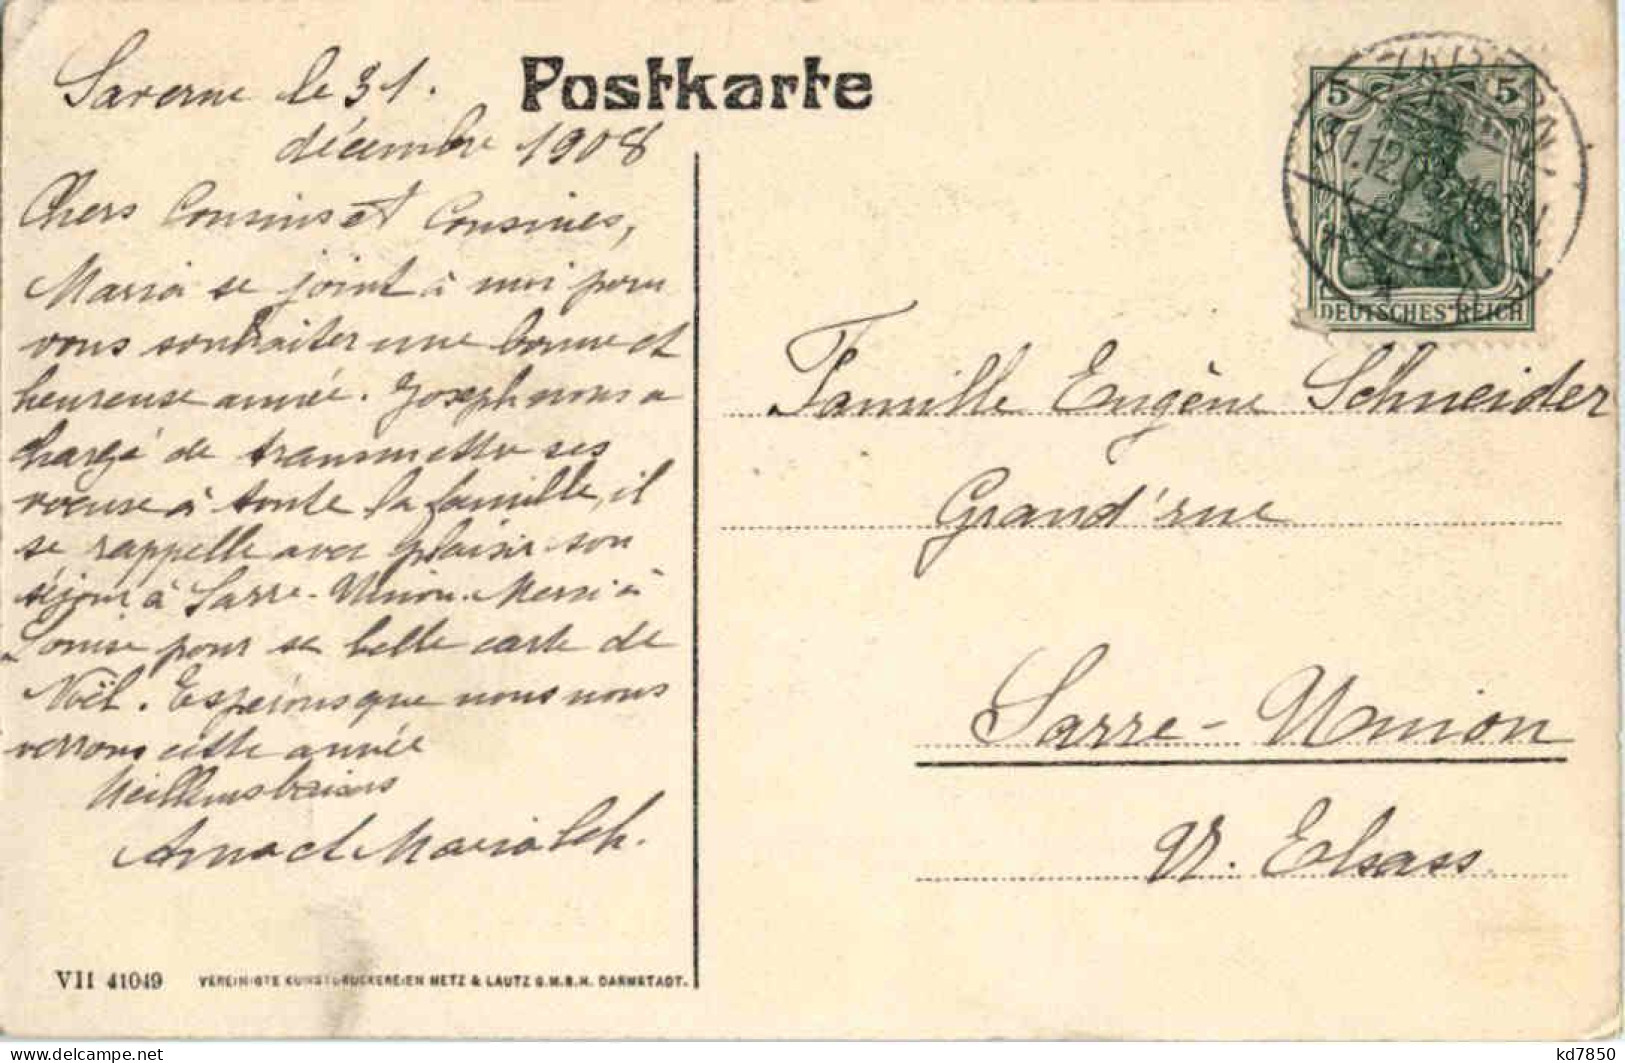 Postkarte
Saverne le 31.
décembre 1908
Chers Cousins et Cousines,
Maria se joint à moi pour
vous souhaiter une bonne et
heureuse année. Joseph nous a
chargé de transmettre ses
voeux à toute la famille, il
se rappelle avec plaisir son
séjour à Sarre-Union. Merci à
Louise pour sa belle carte de
Noël. Espérons que nous nous
verrons cette année
Meilleurs baisers
et Maria
VII 41049 VEREINIGTE KUNSTDRUCKEREIEN METZ & LAUTZ G.M.B.H. DARMSTADT.
5 5
ZABERN
DEUTSCHES REICH
Famille Eugène Schneider
Grand'rue
Sarre-Union
U. Elsass
kd7850